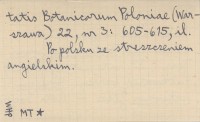 tatis Botanicorum Poloniae (War-
szawa) 22, nr 3: 605-615, il.
Po polsku ze streszczeniem
angielskim.
MT *